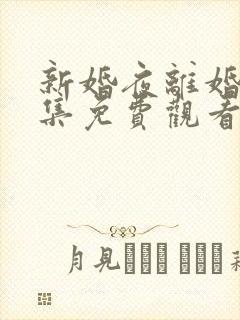 新婚夜離婚
集免費觀看
月見